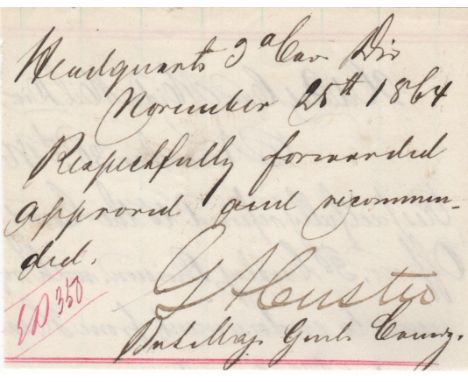 Headquarts 3d Cav Div
November 25th 1864
Respectfully forwarded
approved and recommen-
ded.
G A Custer
Bvt Maj. Genl. Comdg.
ED 350